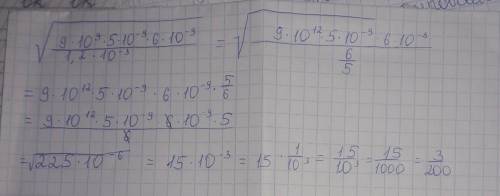 √(9·10⁹·5·10⁻⁹·6·10⁻⁹ / 1,2·10⁻³) = √(9·10¹²·5·10⁻⁹·6·10⁻⁹ / (6/5))
= 9·10¹²·5·10⁻⁹·6·10⁻⁹·5/6
= 9·10¹²·5·10⁻⁹ 6·10⁻⁹·5 / 6
= √225·10⁻⁶ = 15·10⁻³ = 15·1/10³ = 15/10³ = 15/1000 = 3/200